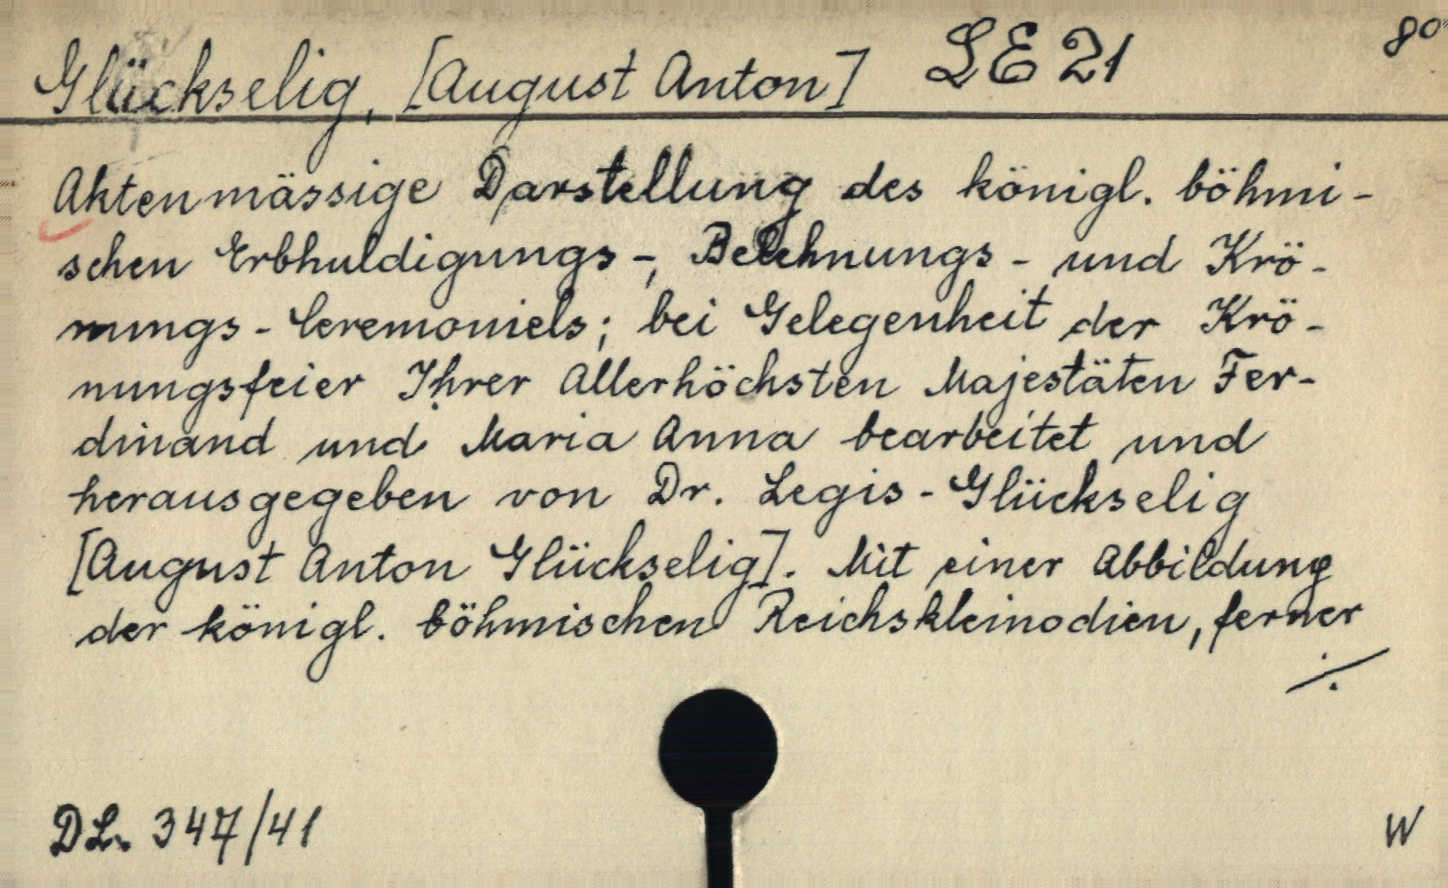 Glückselig, [August Anton] LE 21 8°
Aktenmässige Darstellung des königl. böhmi-
schen Erbhuldigungs-, Belehnungs- und Krö-
nungs-Ceremoniels; bei Gelegenheit der Krö-
nungsfeier Ihrer Allerhöchsten Majestäten Fer-
dinand und Maria Anna bearbeitet und
herausgegeben von Dr. Legis-Glückselig
[August Anton Glückselig]. Mit einer Abbildung
der königl. böhmischen Reichskleinodien, ferner
./.
DL. 347/41 W